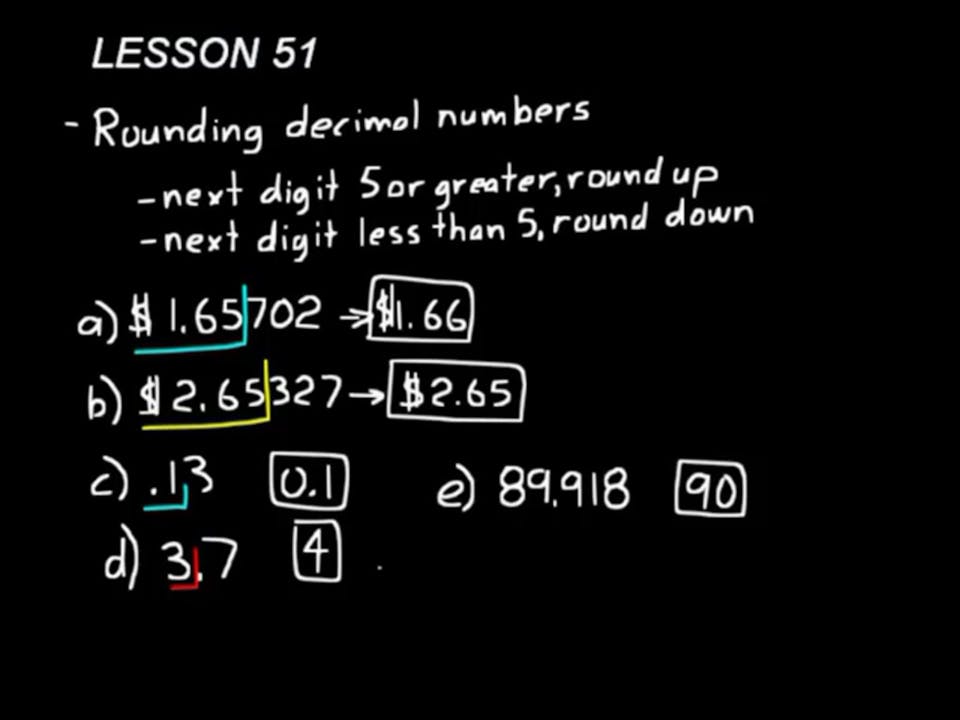 LESSON 51
- Rounding decimal numbers
- next digit 5 or greater, round up
- next digit less than 5, round down
a) $1.65702 → $1.66
b) $2.65327 → $2.65
c) .13 0.1 e) 89.918 90
d) 3.7 4